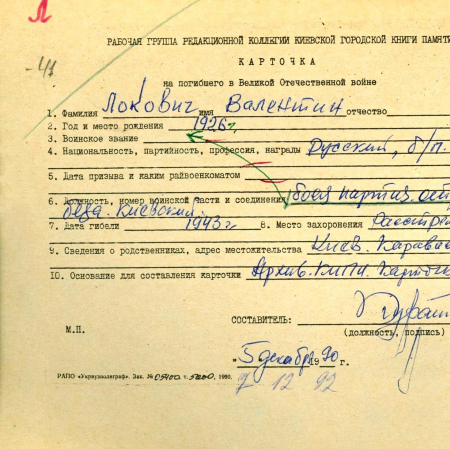 Л
-41
РАБОЧАЯ ГРУППА РЕДАКЦИОННОЙ КОЛЛЕГИИ КИЕВСКОЙ ГОРОДСКОЙ КНИГИ ПАМЯТИ
КАРТОЧКА
на погибшего в Великой Отечественной войне
1. Фамилия Локович имя Валентин отчество
2. Год и место рождения 1926 г.
3. Воинское звание
4. Национальность, партийность, профессия, награды Русский, б/п.
5. Дата призыва и каким райвоенкоматом
6. Должность, номер воинской части и соединения боец партиз.
Киевский
7. Дата гибели 1943 г. 8. Место захоронения Расстрел
9. Сведения о родственниках, адрес местожительства Киев. Карава
10. Основание для составления карточки Архив. Карто
СОСТАВИТЕЛЬ:
(должность, подпись)
М.П.
"5 декабр 1990 г.
7 12 92
РАПО «Укрвузполиграф». Зак. № 05400 т. 5000, 1990.